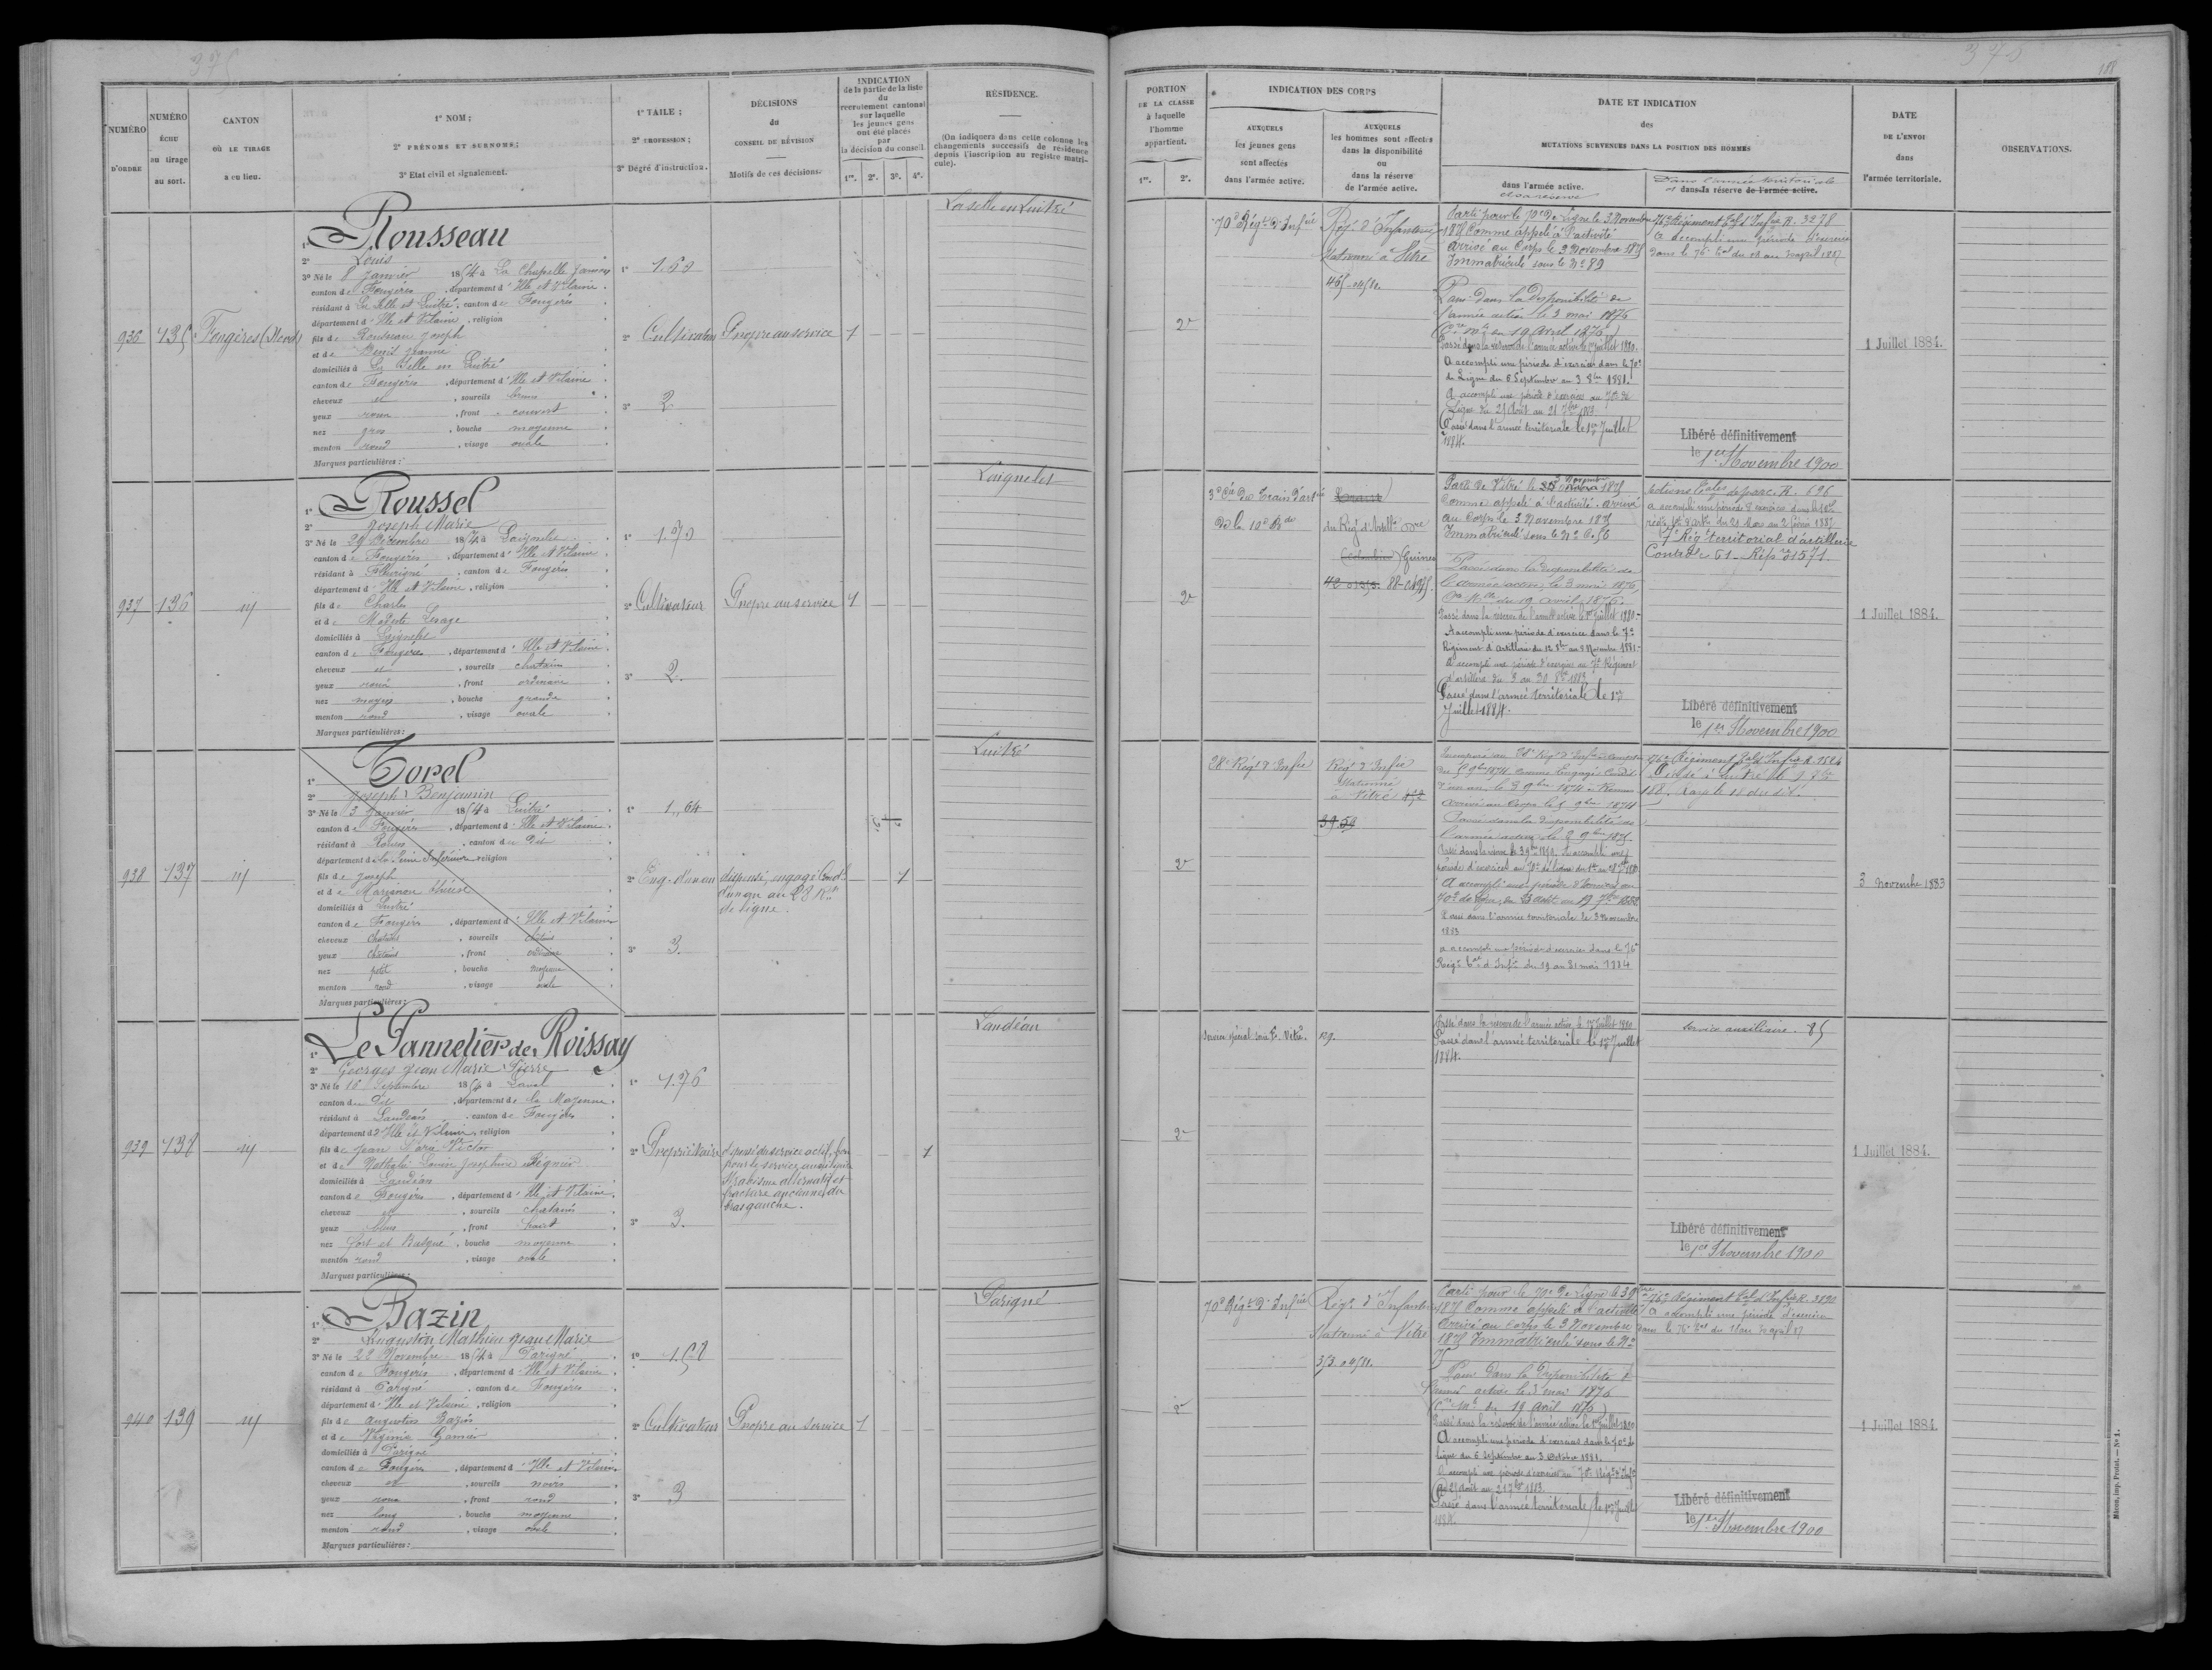 375
NUMÉRO D'ORDRE
NUMÉRO ÉCHU au tirage au sort.
CANTON OÙ LE TIRAGE a eu lieu.
1° NOM;
2° PRÉNOMS ET SURNOMS;
3° Etat civil et signalement.
1° TAILE;
2° PROFESSION;
3° Dégré d'instruction.
DÉCISIONS du CONSEIL DE RÉVISION
Motifs de ces décisions.
INDICATION de la partie de la liste du recrutement cantonal sur laquelle les jeunes gens ont été placés par la décision du conseil.
1re. 2e. 3e. 4e.
RÉSIDENCE.
(On indiquera dans cette colonne les changements successifs de résidence depuis l'inscription au registre matricule).
936
135
Fougères (Nord)
1° Rousseau
2° Louis
3° Né le 8 Janvier 1854 à La Chapelle Janson
canton de Fougères, département d'Ille et Vilaine.
résidant à La Selle en Luitré, canton de Fougères
département d'Ille et Vilaine, religion
fils de Rousseau Joseph
et de Jeanne
domiciliés à La Selle en Luitré
canton de Fougères, département d'Ille et Vilaine
cheveux et, sourcils bruns
yeux roux, front couvert
nez gros, bouche moyenne
menton rond, visage ovale
Marques particulières:
1° 1.60
2° Cultivateur
3° 2
Propre au service
1
La selle en Luitré
937
136
id
1° Roussel
2° Joseph Marie
3° Né le 29 Décembre 1854 à Laignelet
canton de Fougères, département d'Ille et Vilaine
résidant à Fleurigné, canton de Fougères
département d'Ille et Vilaine, religion
fils de Charles
et de Modeste
domiciliés à Laignelet
canton de Fougères, département d'Ille et Vilaine.
cheveux et, sourcils chatains
yeux roux, front ordinaire
nez moyen, bouche grande
menton rond, visage ovale
Marques particulières:
1° 1.70
2° Cultivateur
3° 2.
Propre au service
1
Laignelet
938
137
id
1° Torel
2° Joseph Benjamin
3° Né le 3 Janvier 1854 à Luitré
canton de Fougères, département d'Ille et Vilaine.
résidant à Rouen, canton de dit
département de la Seine Inférieure, religion
fils de Joseph
et de
domiciliés à Luitré
canton de Fougères, département d'Ille et Vilaine
cheveux chatains, sourcils chatains
yeux chatains, front ordinaire
nez petit, bouche moyenne
menton rond, visage ovale
Marques particulières:
1° 1,64
2° Eng. d'un an
3° 3.
dispensé, engagé Condl
d'un an au 28 Rt
de ligne.
1
Luitré
939
138
id
1° Le Pannetier de Roissay
2° Georges Jean Marie Pierre
3° Né le 16 Septembre 1854 à Laval
canton du Dit, département de la Mayenne.
résidant à Landéan, canton de Fougères
département d'Ille et Vilaine, religion
fils de Jean Victor
et de
domiciliés à Landéan
canton de Fougères, département d'Ille et Vilaine.
cheveux et, sourcils chatains
yeux bleus, front haut
nez fort et Busqué, bouche moyenne
menton rond, visage ovale
Marques particulières:
1° 1.76
2° Propriétaire
3° 3.
dispensé du service actif, bon
pour le service auxiliaire
Strabisme alternatif et
fracture ancienne du
bras gauche.
1
Landéan
940
139
id
1° Bazin
2° Augustin Mathieu Jean Marie
3° Né le 28 Novembre 1854 à Parigné
canton de Fougères, département d'Ille et Vilaine
résidant à Parigné, canton de Fougères
département d'Ille et Vilaine, religion
fils de Augustin Bazin
et de Virginie
domiciliés à Parigné
canton de Fougères, département d'Ille et Vilaine
cheveux et, sourcils noirs
yeux roux, front rond
nez long, bouche moyenne
menton rond, visage ovale
Marques particulières:
1° 1.58
2° Cultivateur
3° 3
Propre au service
1
Parigné
375
188
PORTION DE LA CLASSE à laquelle l'homme appartient.
1re. 2e.
INDICATION DES CORPS
AUXQUELS les jeunes gens sont affectés dans l'armée active.
AUXQUELS les hommes sont affectés dans la disponibilité ou dans la réserve de l'armée active.
DATE ET INDICATION des MUTATIONS SURVENUES DANS LA POSITION DES HOMMES
dans l'armée active.
et la réserve
Dans l'armée territoriale
et dans la réserve de l'armée active.
DATE DE L'ENVOI dans l'armée territoriale.
OBSERVATIONS.
2e
70e Régt d'Infrie
Rég. d'Infanterie
Stationné à Vitré
Parti pour le 70e De Ligne le 3 Novembre
1875 Comme appelé à l'activité
Arrivé au Corps le 3 Novembre 1875
Immatriculé sous le N° 89
Passé dans la Disponibilité de
l'armée active le 3 mai 1876
19 Avril 1876)
Passé dans la réserve de l'armée active le 1er Juillet 1880.
A accompli une période d'exercices dans le 70e
de Ligne du 6 Septembre au 3 8bre 1881.
A accompli une période d'exercices au 70e de
Ligne du 25 Août au 21 7bre 1883
Passé dans l'armée territoriale le 1er Juillet
1884.
76e Régiment Tal d'Infrie R. 3278
a accompli une période d'exercices
1 Juillet 1884.
Libéré définitivement
le 1er Novembre 1900
2e
3e Cie Du Train d'artie
De la 10e Bde
88-
Parti de Vitré le 3 Novembre 1875
Comme appelé à l'activité. Arrivé
au Corps le 3 Novembre 1875
Immatriculé sous le N°
Passé dans la disponibilité de
l'armée active le 3 mai 1876
du 19 avril 1876.
Passé dans la réserve de l'armée active le 1er Juillet 1880.
A accompli une période d'exercices dans le 7e
Régiment d'Artillerie du 12 8bre au 8 Novembre 1881.
A accompli une période d'exercices au 7e Régiment
d'artillerie du 3 au 30 8bre 1883
Passé dans l'armée territoriale le 1er
Juillet 1884.
R. 696
Régt territorial d'artillerie
1571
1 Juillet 1884.
Libéré définitivement
le 1er Novembre 1900
2e
28e Régt d'Infie
Régt d'Infie
Stationné
à Vitré
39.59
d'un an, le 3 9bre 1874 à Rouen
arrivé au Corps le 5 9bre 1874
Passé dans la disponibilité de
l'armée active
Passé dans l'armée territoriale le 3 Novembre
1883
a accompli une période d'exercices dans le 76e
Régt Tal d'Infie du 19 au 31 mai 1884
76e Régiment Tal d'Infrie R. 1524
3 Novembre 1883
2e
Service spécial Vitré.
129.
Passé dans la réserve de l'armée active, le 1er Juillet 1880
Passé dans l'armée territoriale le 1er Juillet
1884.
Service auxiliaire. 85
1 Juillet 1884.
Libéré définitivement
le 1er Novembre 1900
2e
70e Régt D'Infrie
Régt d'Infanterie
Stationné à Vitré
Parti pour le 70e De Ligne le 3 9bre
1875 Comme appelé à l'activité
Arrivé au Corps le 3 Novembre
1875 Immatriculé sous le N°
75
Passé Dans la Disponibilité de
l'armée active le 3 mai 1876
du 19 Avril 1876)
Passé dans la réserve de l'armée active le 1er Juillet 1880
A accompli une période d'exercices dans le 70e de
ligne du 6 septembre au 3 Octobre 1881.
A accompli une période d'exercices au 70e Régt d'Infie
du 25 août au 21 7bre 1883.
Passé dans l'armée territoriale le 1er Juillet
1884.
76e Régiment Tal d'Infrie R. 3890
a accompli une période d'exercices
1 Juillet 1884.
Libéré définitivement
le 1er Novembre 1900